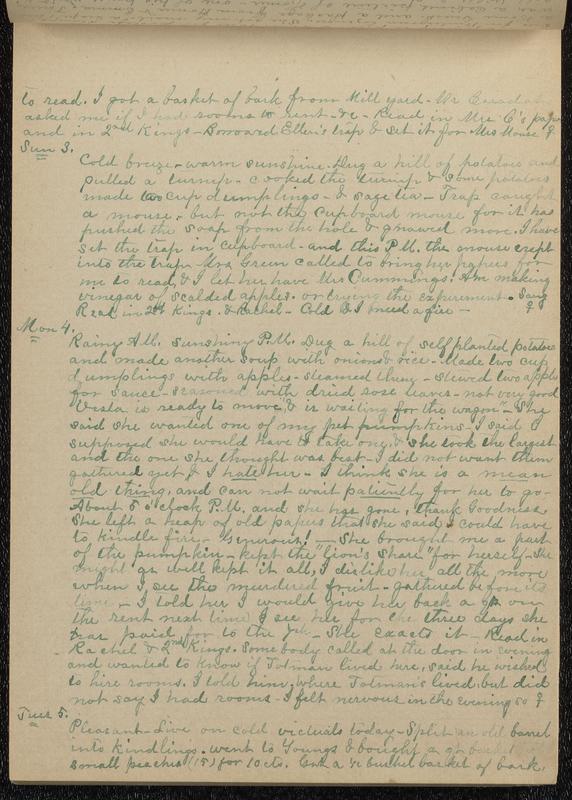 to read. I got a basket of bark from Mill yard - Mr
asked me if I had rooms to rent - &c - Read in Mrs C's paper
and in 2nd Kings - Borroward Ellen's trap & set it for Mrs Mouse ♀
Sun 3.
Cold breeze - warm sunshine. Dug a hill of potatoes and
pulled a turnip - cooked the turnip & some potatoes
made two cup dumplings - & sage tea - Trap caught
a mouse, but not the cupboard mouse for it has
pushed the soap from the hole & gnawed more. I have
set the trap in cupboard - and this P.M. the mouse crept
into the trap. Mrs Green called to bring her papers for
me to read, & I let her have Mrs Cummings. Am making
vinegar of scalded apples. or trying the experiment - Sang
Read in 2nd Kings. & Rachel - Cold & I need a fire - ♀
Mon 4.
Rainy A.M. sunshiny P.M. Dug a hill of self planted potatoes
and made another soup with onions & rice - Made two cup
dumplings with apples - steamed them - stewed two apples
for sauce - seasoned with dried rose leaves - not very good
Vesta is ready to move & is waiting for the wagon - She
said she wanted one of my pet pumpkins - I said I
supposed she would have to take one, & she took the largest
and the one she thought was best - I did not want them
gathered yet, & I hate her - I think she is a mean
old thing, and can not wait patiently for her to go -
About 5 o'clock P.M. and she has gone, thank Goodness
She left a heap of old papers that she said I could have
to kindle fire - Generous! - She brought me a part
of the pumpkin - kept the "lion's share" for herself - She
might as well kept it all, I dislike her all the more
when I see the murdered fruit - gathered before its
time - I told her I would give her back a on
the rent next time I see her for the three days she
has paid for to the 7th - She exacts it - Read in
Rachel & 2nd Kings. Somebody called at the door in evening
and wanted to know if Tolman lived here, said he wished
to hire rooms. I told him, where Tolman's lived but did
not say I had rooms - I felt nervous in the evening so ♀
Tues 5.
Pleasant - Live on cold victuals today - Split an old barrel
into kindlings. went to Youngs & bought a qr basket
small peaches (15) for 10 cts. Got a ½ bushel basket of bark,